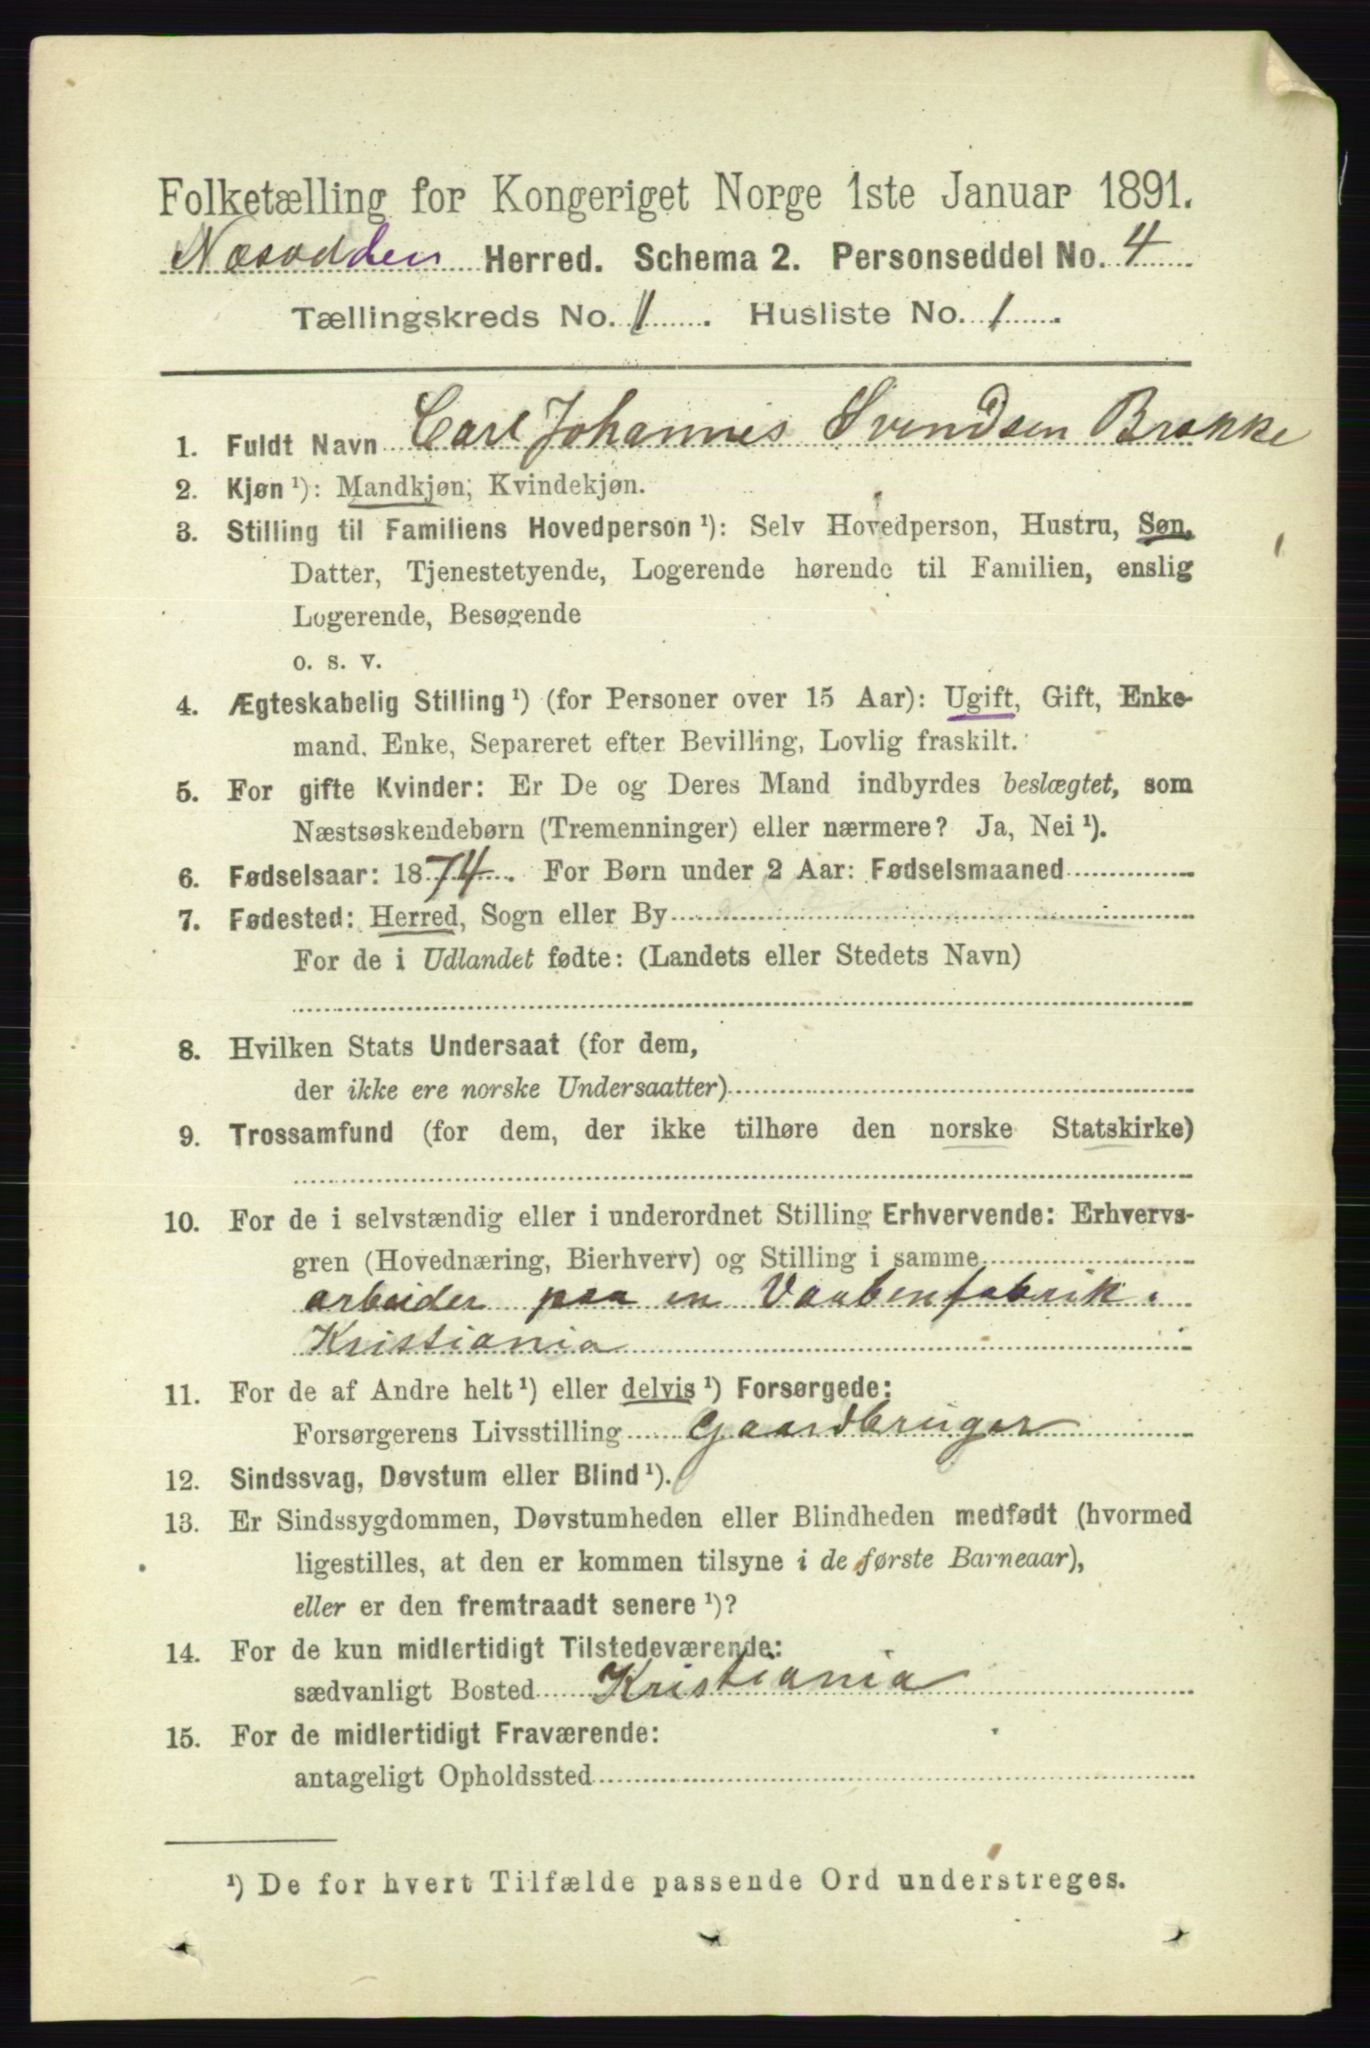 Folketælling for Kongeriget Norge 1ste Januar 1891.
Næsodden Herred. Schema 2. Personseddel No. 4
Tællingskreds No. 11. Husliste No. 1.
1. Fuldt Navn Carl Johannes Svendsen Brække
2. Kjøn ¹): Mandkjøn, Kvindekjøn.
3. Stilling til Familiens Hovedperson ¹): Selv Hovedperson, Hustru, Søn,
Datter, Tjenestetyende, Logerende hørende til Familien, enslig
Logerende, Besøgende
o. s. v.
4. Ægteskabelig Stilling ¹) (for Personer over 15 Aar): Ugift, Gift, Enke-
mand, Enke, Separeret efter Bevilling, Lovlig fraskilt.
5. For gifte Kvinder: Er De og Deres Mand indbyrdes beslægtet, som
Næstsøskendebørn (Tremenninger) eller nærmere? Ja, Nei ¹).
6. Fødselsaar: 1874. For Børn under 2 Aar: Fødselsmaaned
7. Fødested: Herred, Sogn eller By
For de i Udlandet fødte: (Landets eller Stedets Navn)
8. Hvilken Stats Undersaat (for dem,
der ikke ere norske Undersaatter)
9. Trossamfund (for dem, der ikke tilhøre den norske Statskirke)
10. For de i selvstændig eller i underordnet Stilling Erhvervende: Erhvervs-
gren (Hovednæring, Bierhverv) og Stilling i samme
arbeider paa en Vaabenfabrik i
Kristiania
11. For de af Andre helt ¹) eller delvis ¹) Forsørgede:
Forsørgerens Livsstilling Gaardbruger
12. Sindssvag, Døvstum eller Blind ¹).
13. Er Sindssygdommen, Døvstumheden eller Blindheden medfødt (hvormed
ligestilles, at den er kommen tilsyne i de første Barneaar),
eller er den fremtraadt senere ¹)?
14. For de kun midlertidigt Tilstedeværende:
sædvanligt Bosted Kristiania
15. For de midlertidigt Fraværende:
antageligt Opholdssted
¹) De for hvert Tilfælde passende Ord understreges.